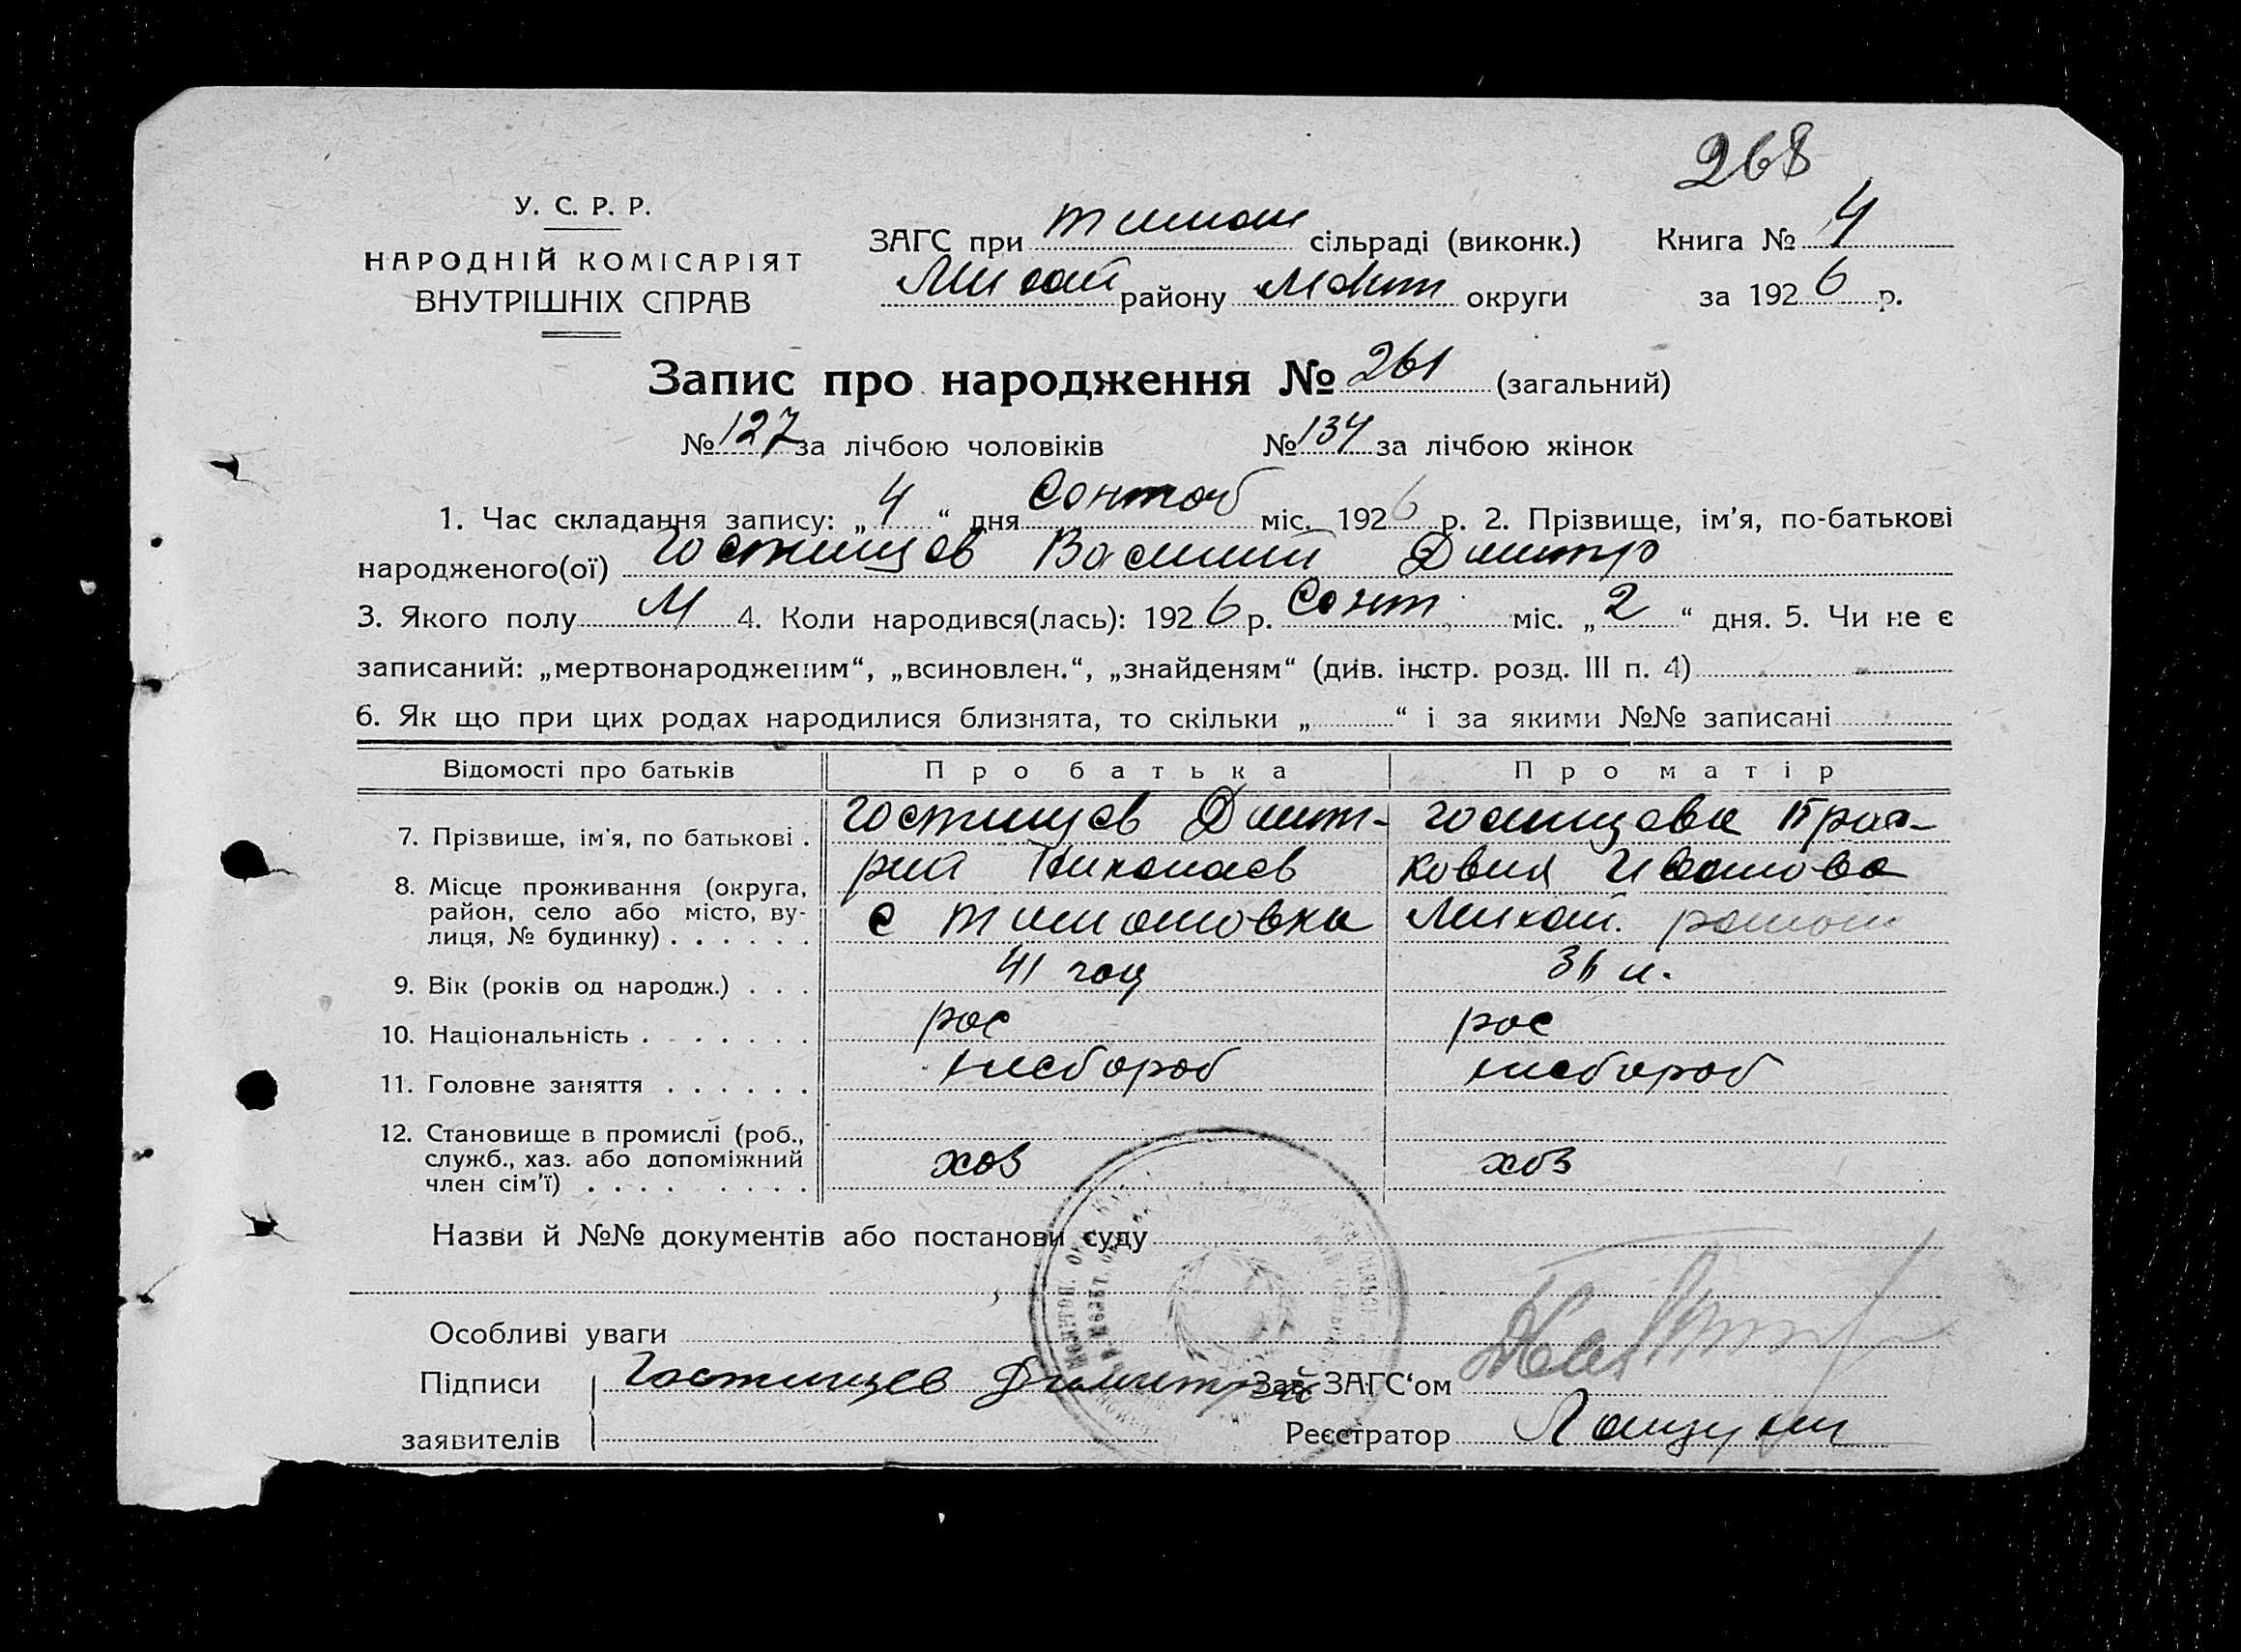 268
У. С. Р. Р.
НАРОДНІЙ КОМІСАРІЯТ
ВНУТРІШНІХ СПРАВ
ЗАГС при тимош сільраді (виконк.) Книга № 4
району округи за 1926 р.
Запис про народження № 261 (загальний)
№ 127 за лічбою чоловіків № 134 за лічбою жінок
1. Час складання запису: „4“ дня міс. 1926 р. 2. Прізвище, ім'я, по-батькові
народженого(ої) Гостищев Василий Дмитр
3. Якого полу М 4. Коли народився(лась): 1926 р. Сент. міс. „2“ дня. 5. Чи не є
записаний: „мертвонародженим“, „всиновлен.“, „знайденям“ (див. інстр. розд. III п. 4)
6. Як що при цих родах народилися близнята, то скільки „ “ і за якими №№ записані
Відомості про батьків Про батька Про матір
7. Прізвище, ім'я, по батькові . Гостищев Дмит- Гостищева Прас-
рий Николаев ковия Иванова
8. Місце проживання (округа,
район, село або місто, ву-
лиця, № будинку) . . . . . . с Тимошовка Михай. район
9. Вік (років од народж.) . . . 41 год 36 л.
10. Національність . . . . . . . рос рос
11. Головне заняття . . . . . . хлебороб хлебороб
12. Становище в промислі (роб.,
служб., хаз. або допоміжний
член сім'ї) . . . . . . . . хоз хоз
Назви й №№ документів або постанови суду
Особливі уваги
Підписи Гостищев Димитрий Зав. ЗАГС‘ом
заявителів Реєстратор